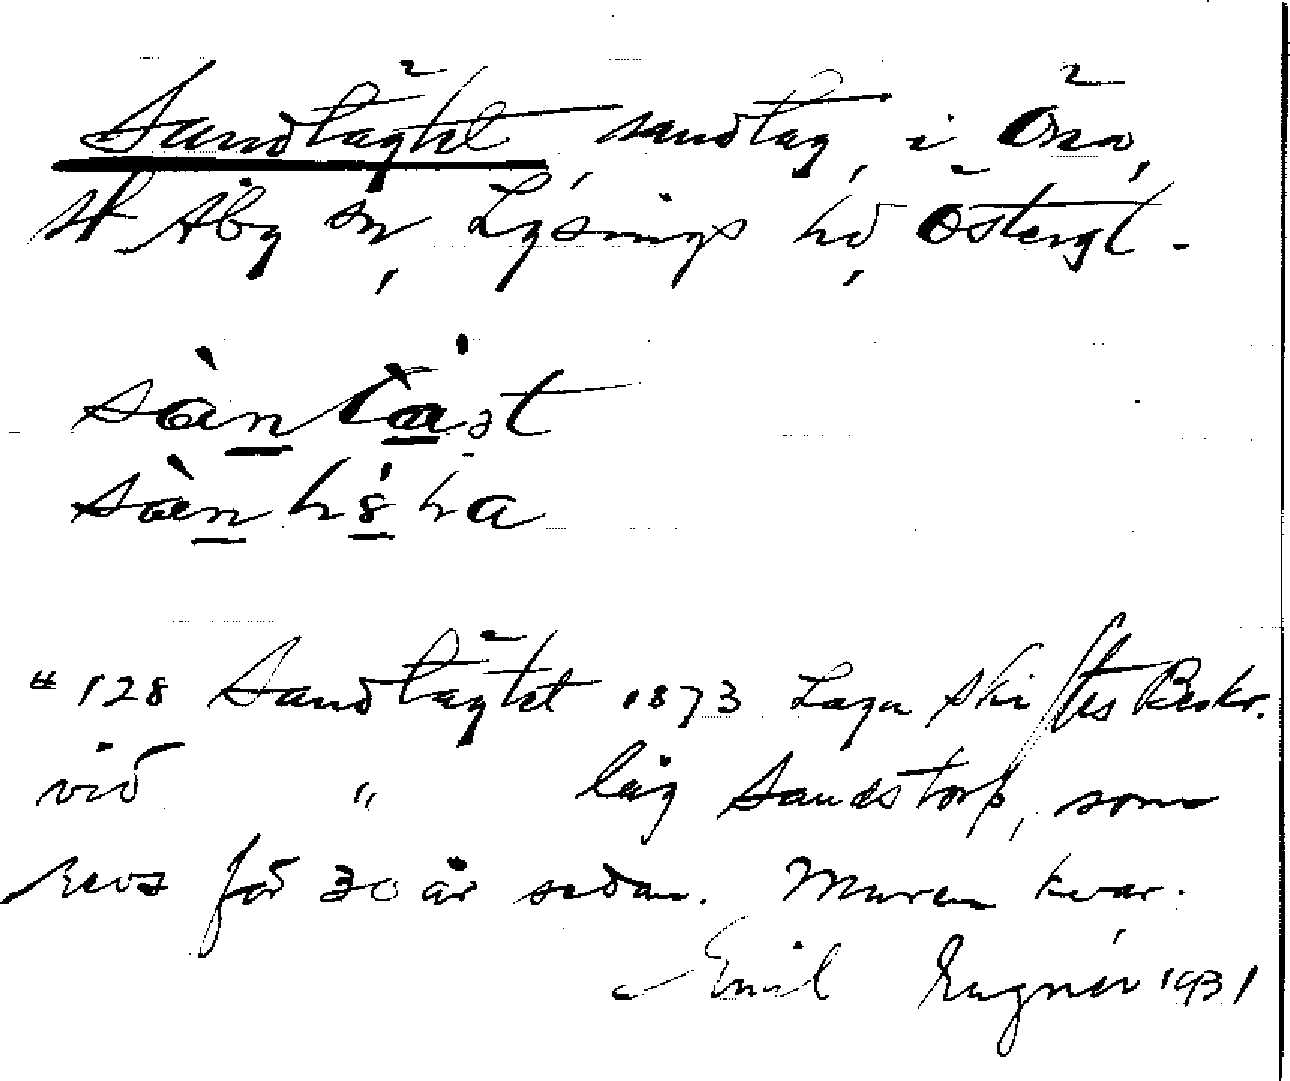 Sandtäght sandtag, i Öna,
St. Åby sn, Lysings hd, Östergl.
sàn tà ət
"128 Sandtäktet 1873 Laga Skiftes Beskr.
vid " låg Sandstorp, som
revs för 30 år sedan. Muren kvar.
Emil Engnér 1931